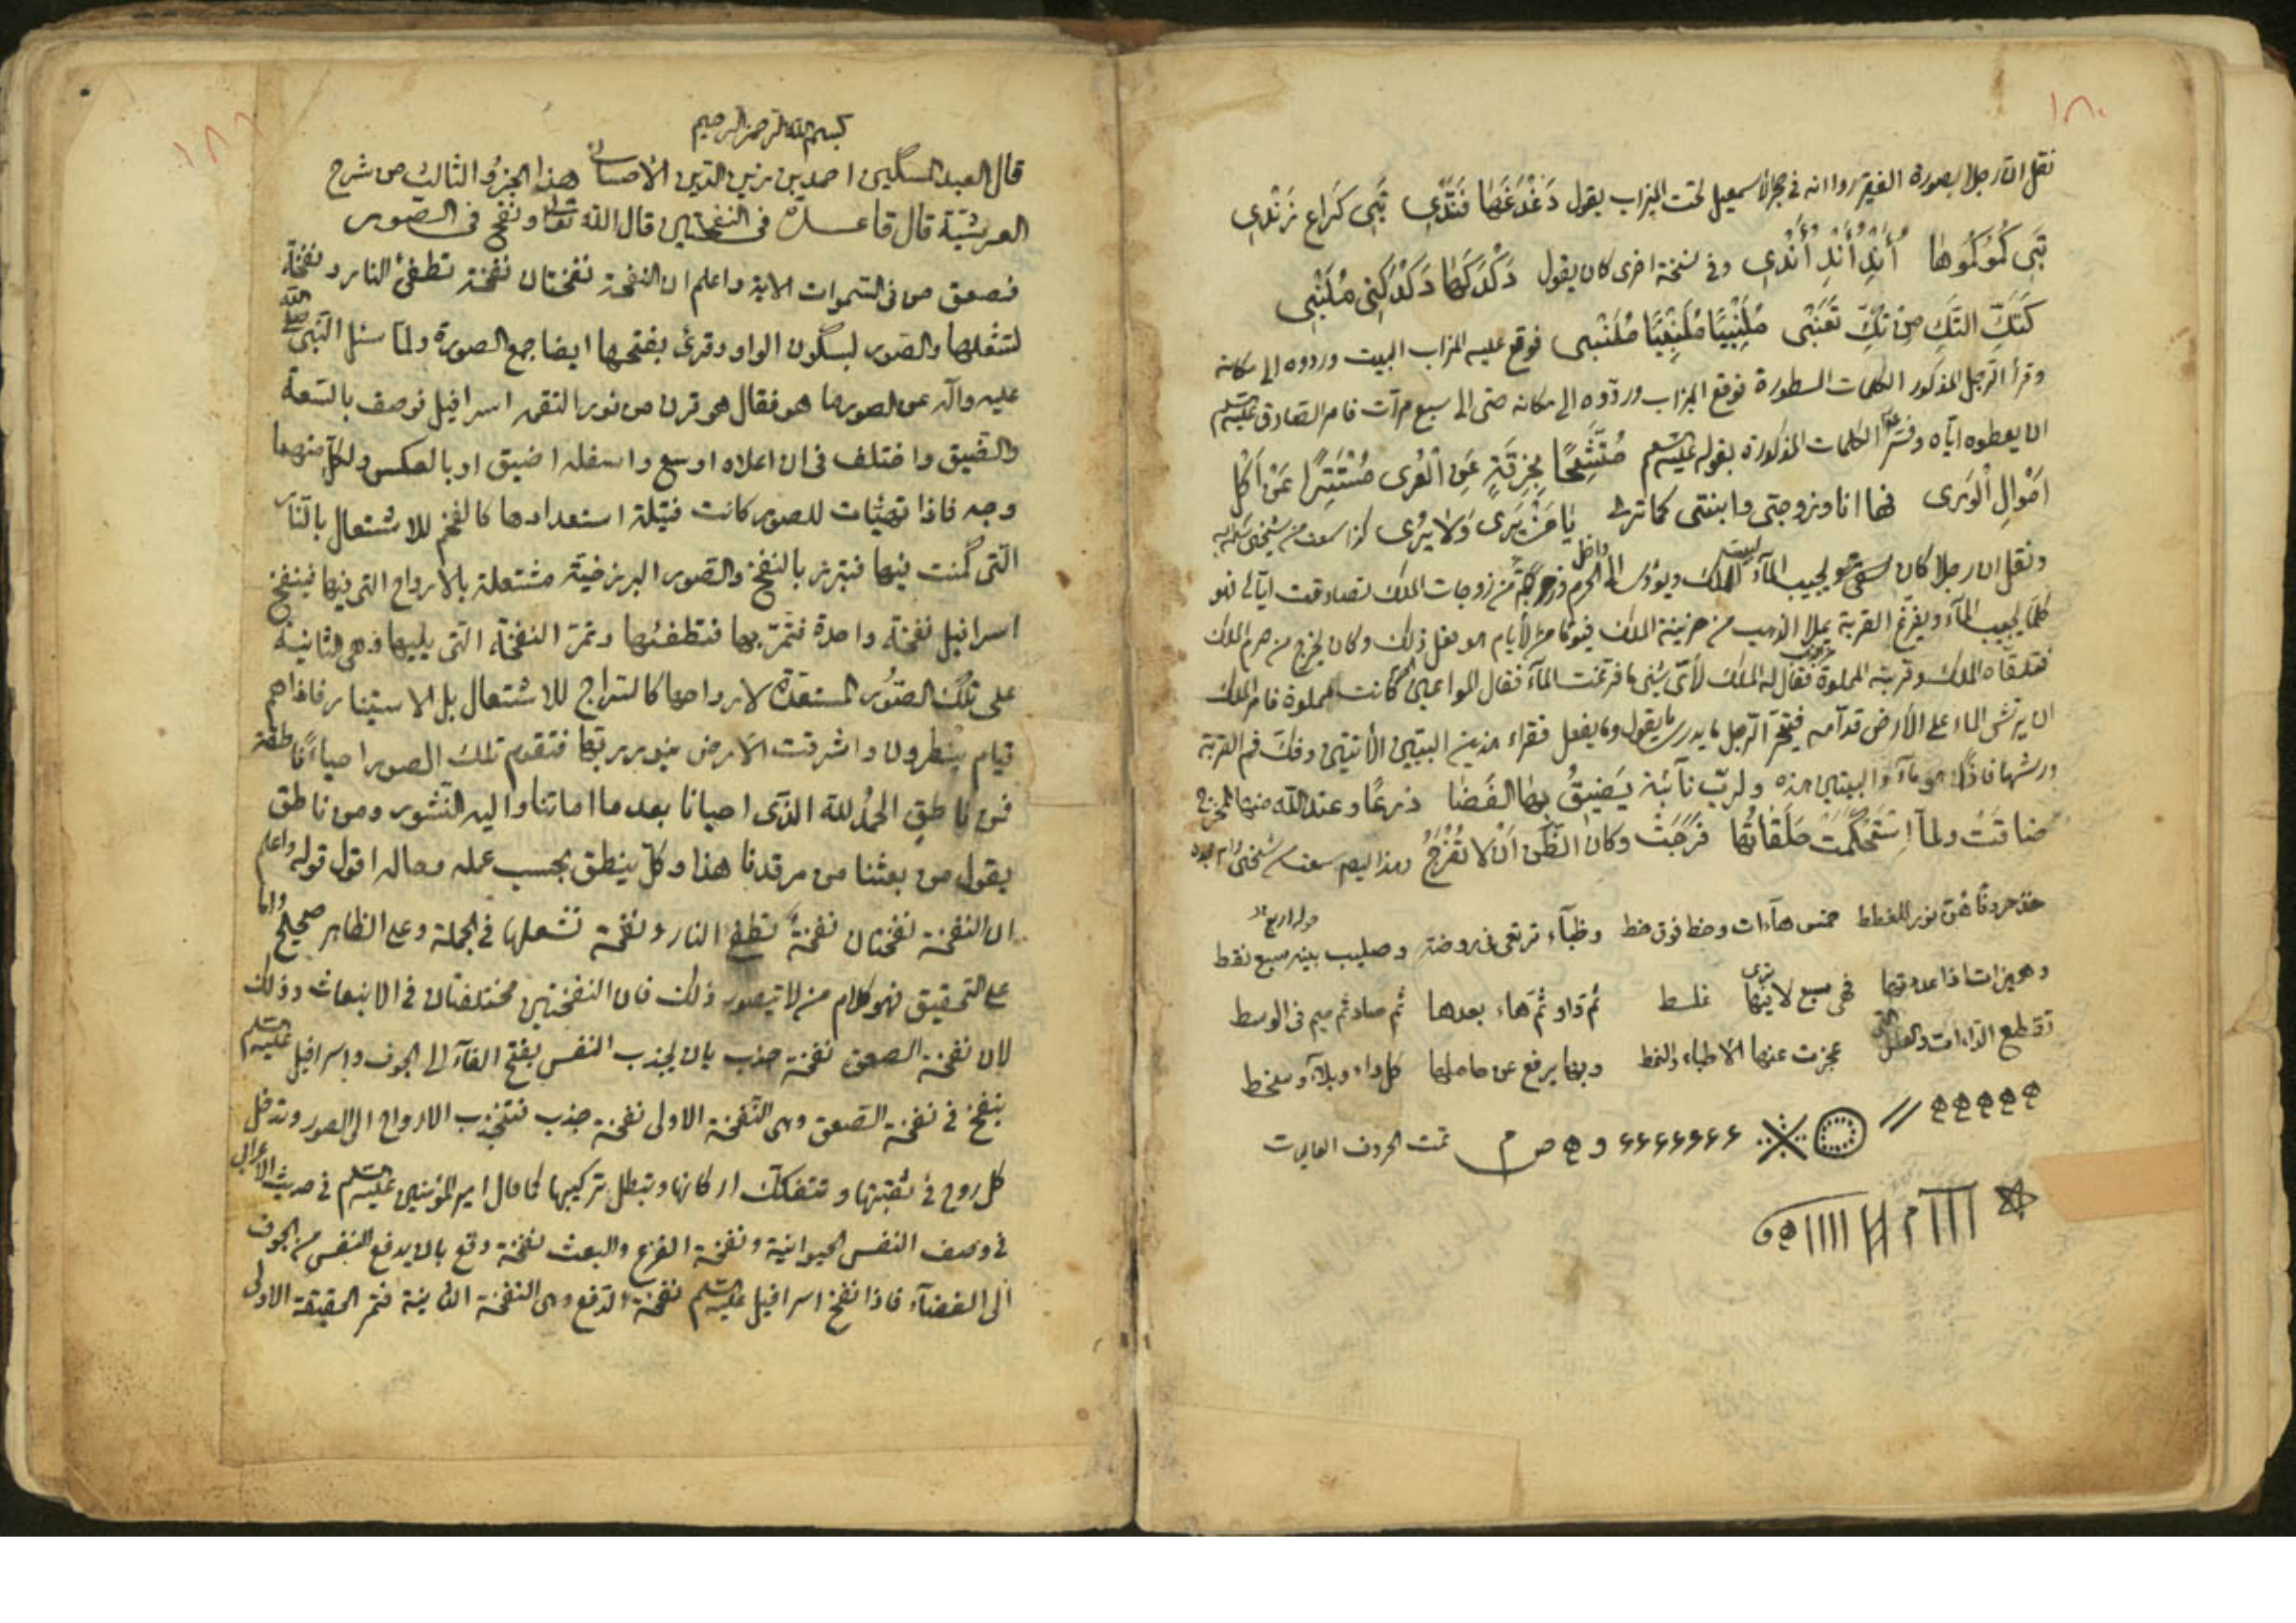 ١٨٠
نقل ان رجلا بصورة الفقير رواانه في حجر الأسمعيل تحت الميزاب يقول دَغْدَغَهَا فَنَدِّي تَبَى كَرَاعِ نَرَنْدِي
تَبَى كُمُوكُمُوهَا أَنْدِ أَنْدِ أَنْدِي وفي نسخة اخرى كان يقول دَكْدَكَهَا دَكْدَكَنِى مُكَنْبِى
كَتَكِّ التَكِ مِنْ تَكِّ تَعَنْبَى مُلَنْبِيَّا مُلَنْبِعِيَّا مُلَنْبى فوقع عليه المزاب البيت وردوه الى مكانه
وقرأ الرجل المذكور الكلمات المسطورة فوقع الميزاب وردّوه الى مكانه حتى الى سبع مرآت فامر الصادق عليه السلم
ان يعطوه ايّاه وفسّر الكلمات المذكورة بقوله عليه السلم مُتَّشِحًا بِخِرِقَةٍ عَنِ الْعُرى مُسْتَتِرًا عَنْ اَكْلِ
اَمْوَالِ الْوَرى فها انا وزوجتى وابنتى كما ترى يَا مَنْ يَرَى وَلا يُرى كذا سمعت من شيخى
ونقل ان رجلا كان سقّى يجيب المآء لبيت الملك ويؤدى الى داخل الحرم من زوجات الملك تصادقت ايّا فهو
كلما يجيب المآء ويفرّغ القربة يملا الذهب من خزينة الملك فيوما من الأيام هو يفعل ذلك وكان يخرج من حرم الملك
فتلقاه الملك وقربته المملوة فقال له الملك لأىّ شئ ما فرغت المآء فقال كانت مملوة فامر الملك
ان يرش الماء على الأرض قدآمه فتحيّر الرّجل ما يدرى ما يقول وما يفعل فقراء هذين البيتين الأتيين وفكّ فم القربة
ورشها فاذا هو مآء والبيتين هذه ولربّ نآئبة يَضيقُ بها الفَضَا ذرعًا وعند الله منها المخرج
ضاقتْ ولمآ اسْتَحْكَمتْ حَلَقاتُها فُرِجَتْ وكان الظّن اَنْ لا تُفْرَجُ
خذ حروفًا خمس هآءات وخط فوق خط وظبآء ترتقى فى روضة وصليب بينه سبع نقط
وهميزات اذا عددتها فهى سبع لا ترى فيها غلط ثم واو ثم هاء بعدها ثم صاد ثم ميم فى الوسط
عجزت عنها الاطباء والنمط وبها يرفع عن حاملها كل داء وبلآء وسخط
تمت الحروف العاليات
١٨١
بسم الله الرحمن الرحيم
قال العبد المسكين احمد بن زين الدين الأحسائى هذا الجزؤ الثالث من شرح
العرشيّة قال قاعدة فى النفختين قال الله تعالى ونفخ فى الصّور
فصعق من فى السموات الاية واعلم ان النفخة نفختان نفخة تطفئ النار ونفخة
تشعلها والصّور بسكون الواو وقرئ بفتحها ايضا جمع الصورة ولمّا سئل النّبى صلى الله
عليه وآله عن الصور ما هو فقال هو قرن من نور التقمه اسرافيل فوصف بالسّعة
والضّيق واختلف فى ان اعلاه اوسع واسفله اضيق او بالعكس ولكلّ منهما
وجه فاذا تهيّئات للصور كانت فتيلة استعدادها كالفحم للاشتعال بالنّار
الّتى كمنت فيها فتبرز بالنفخ والصّور البرزخيّة مشتعلة بالارواح التى فيها فينفخ
اسرافيل نفخة واحدة فتمرّ بها فتطفئها وتمرّ النفخة الّتى يليها وهى الثانية
على تلك الصّور المستعدّة لارواحها كالسّراج للاشتعال بل الاستينار فاذاهم
قيام ينظرون واشرقت الأرض بنور ربّها فتقوم تلك الصور احياءً ناطقة
فمن ناطقٍ الحمد لله الّذى احيانا بعد ما اماتنا واليه النّشور ومن ناطق
يقول من بعثنا من مرقدنا هذا وكلّ ينطق بحسب عمله وحاله اقول قوله واعلم
ان النفخة نفختان نفخةٌ تطفئ النار ونفخة تشعلها فى الجملة وعلى الظاهر صحيح واما
على التحقيق فهو كلام من لا تيصور ذلك فان النفختين مختلفتان فى الانبعاث وذلك
لان نفخة الصعق نفخة جذب بان يجذب النفس بفتح الفآء الى الجوف واسرافيل عليه السلم
ينفخ فى نفخة الصّعق وهى النّفخة الاولى نفخة جذب فتنجذب الارواح الى الصور وتدخل
كل روح فى ثقبتها وتتفكّك اركانها وتبطل تركيبها كما قال امير المؤمنين عليه السلم فى حديث الأعرابى
فى وصف النفس الحيوانية ونفخة الفزع والبعث نفخة دفع بان يدفع النفس من الجوف
الى الفضآء فاذا نفخ اسرافيل عليه السلم نفخة الدّفع وهى النفخة الثانية فتمر الحقيقة الاولى